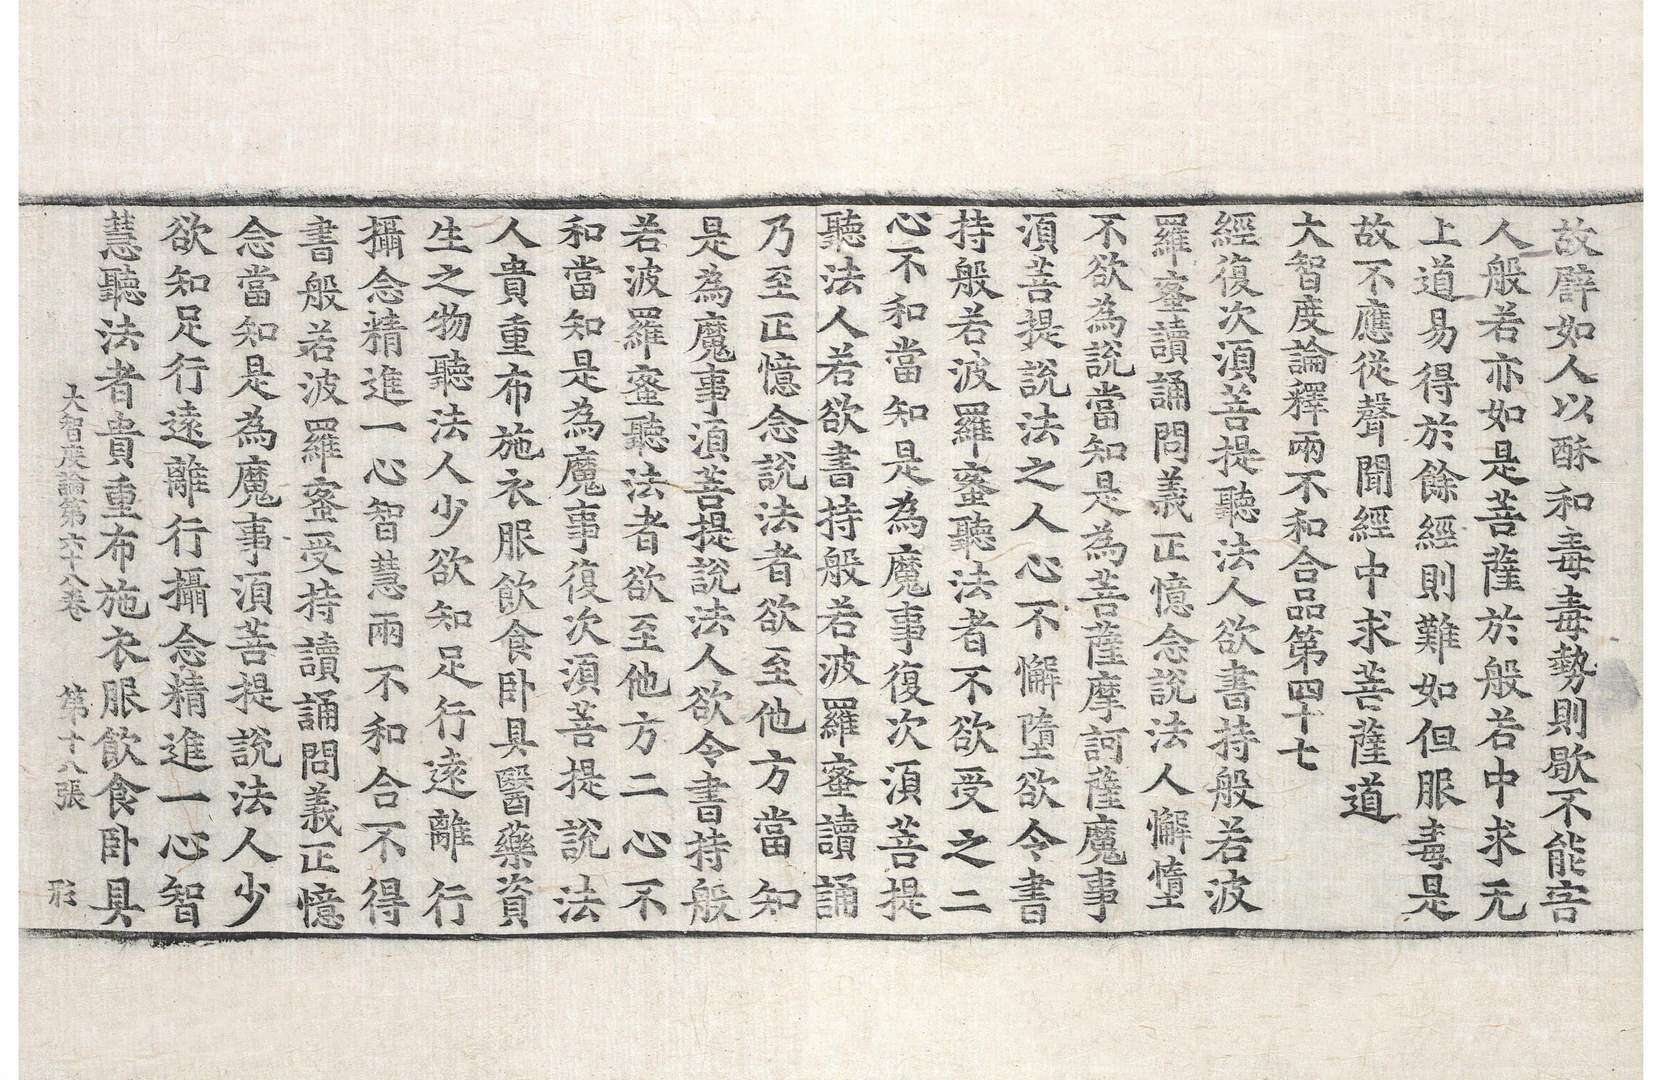 故譬如人以酥和毒毒勢則歇不能害
人般若亦如是菩薩於般若中求无
上道易得於餘經則難如但服毒是
故不應從聲聞經中求菩薩道
大智度論釋兩不和合品第四十七
經復次須菩提聽法人欲書持般若波
羅蜜讀誦問義正憶念說法人懈墮
不欲為說當知是為菩薩摩訶薩魔事
須菩提說法之人心不懈墮欲令書
持般若波羅蜜聽法者不欲受之二
心不和當知是為魔事復次須菩提
聽法人若欲書持般若波羅蜜讀誦
乃至正憶念說法者欲至他方當知
是為魔事須菩提說法人欲令書持般
若波羅蜜聽法者欲至他方二心不
和當知是為魔事復次須菩提說法
人貴重布施衣服飲食卧具醫藥資
生之物聽法人少欲知足行遠離行
攝念精進一心智慧兩不和合不得
書般若波羅蜜受持讀誦問義正憶
念當知是為魔事須菩提說法人少
欲知足行遠離行攝念精進一心智
慧聽法者貴重布施衣服飲食卧具
大智度論第六十八卷 第十八張 形